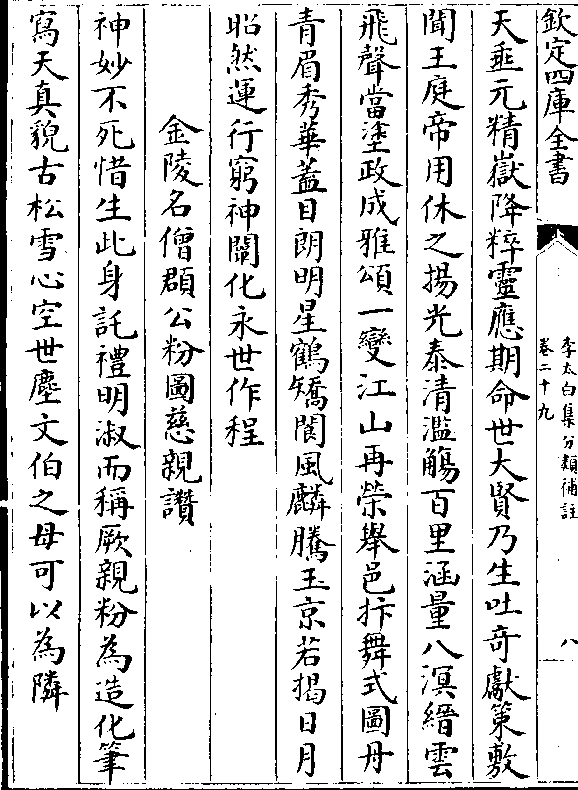 欽定四庫全書
李太白集分類補註
卷二十九
八
天垂元精嶽降粹靈應期命世大賢乃生吐奇獻策敷
聞王庭帝用休之揚光泰清濫觴百里涵量八溟縉雲
飛聲當塗政成雅頌一變江山再榮舉邑抃舞式圖丹
青眉秀華蓋目朗明星鶴矯閬風麟騰玉京若揭日月
昭然運行窮神闡化永世作程
金陵名僧頵公粉圖慈親讚
神妙不死惜生此身託禮明淑而稱厥親粉為造化筆
寫天真貌古松雪心空世塵文伯之母可以為隣